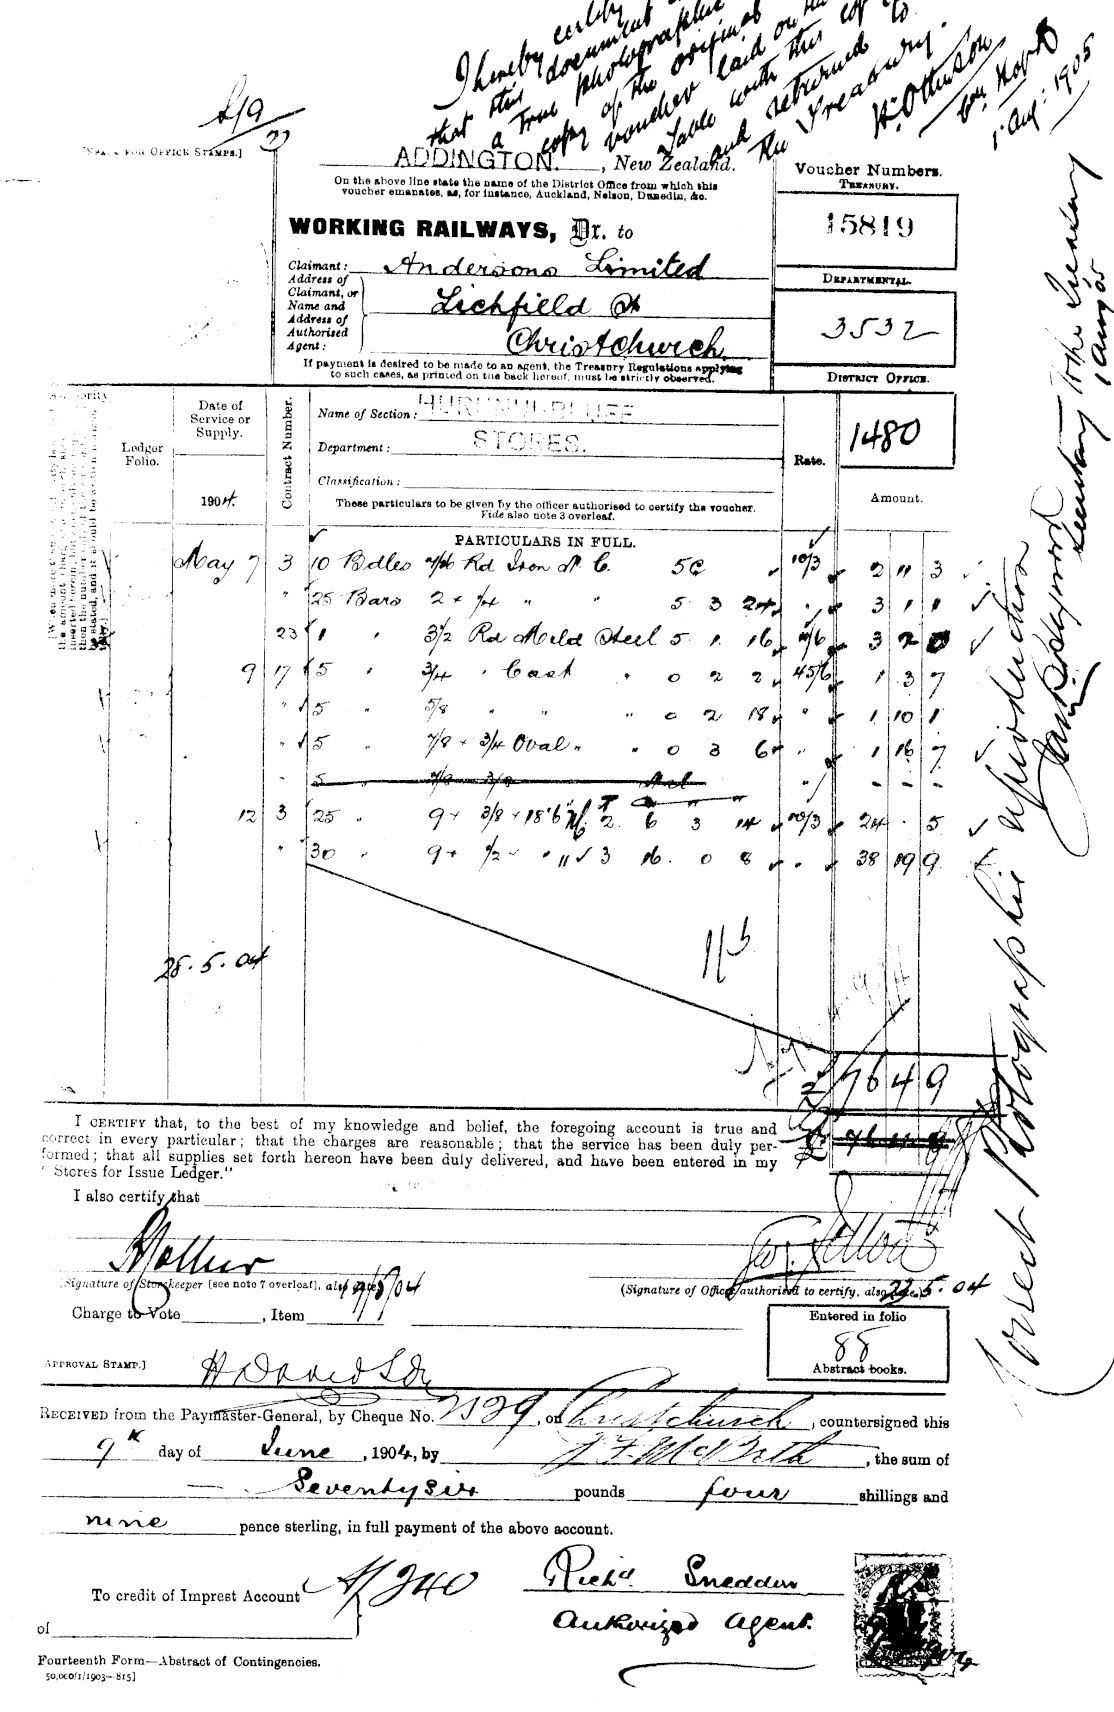 I hereby certify
that this document
a true photographic
copy of the original
voucher laid on the
Table with this copy
and returned to
the Treasury.
1 Aug: 1905
[SPACE FOR OFFICE STAMPS.]
ADDINGTON. , New Zealand.
On the above line state the name of the District Office from which this
voucher emanates, as, for instance, Auckland, Nelson, Dunedin, &c.
WORKING RAILWAYS, Dr. to
Claimant: Andersons Limited
Address of
Claimant, or
Name and
Address of
Authorised
Agent:
Lichfield St
Christchurch
If payment is desired to be made to an agent, the Treasury Regulations applying
to such cases, as printed on the back hereof, must be strictly observed.
Voucher Numbers.
TREASURY.
15819
DEPARTMENTAL.
3532
DISTRICT OFFICE.
1480
Ledger
Folio.
Date of
Service or
Supply.
1904.
Contract Number.
Name of Section: HURUNUI-BLUFF
Department: STORES.
Classification:
These particulars to be given by the officer authorised to certify the voucher.
Vide also note 3 overleaf.
Rate.
Amount.
PARTICULARS IN FULL.
May 7 3 10 Bdles 7/16 Rd Iron N.C. 5C 10/3 2 11 3
" 25 Bars 2 x 1/4 " " 5 3 24 " 3 1 1
23 1 " 3 1/2 Rd Mild Steel 5 1 16 11/6 3 2 0
9 17 5 " 3/4 " Cast " 0 2 2 45/6 1 3 7
" 5 " 5/8 " " " 0 2 18 " 1 10 1
" 5 " 7/8 x 3/4 Oval " " 0 3 6 " 1 16 7
" 5 " 7/8 3/8 " - - -
12 3 25 " 9 x 3/8 x 18'6" 2 6 3 14 10/3 24 . 5
" 30 " 9 x 1/2 " " 3 16 0 8 " 38 19 9
28.5.04
£ 76 4 9
I CERTIFY that, to the best of my knowledge and belief, the foregoing account is true and
correct in every particular; that the charges are reasonable; that the service has been duly per-
formed; that all supplies set forth hereon have been duly delivered, and have been entered in my
" Stores for Issue Ledger."
I also certify that
(Signature of Storekeeper [see note 7 overleaf], also date.) 19/5/04
(Signature of Officer authorised to certify, also date.) 23.5.04
Charge to Vote , Item
Entered in folio
88
Abstract books.
APPROVAL STAMP.]
RECEIVED from the Paymaster-General, by Cheque No. 2529, on Christchurch , countersigned this
9th day of June , 1904, by , the sum of
Seventy six pounds four shillings and
nine pence sterling, in full payment of the above account.
To credit of Imprest Account A/240
of
Richd. Sneddon
Authorized Agent.
Fourteenth Form—Abstract of Contingencies.
50,000/1/1903—815]
Correct Photographic reproduction
Secretary to the Treasury
1 Aug 05